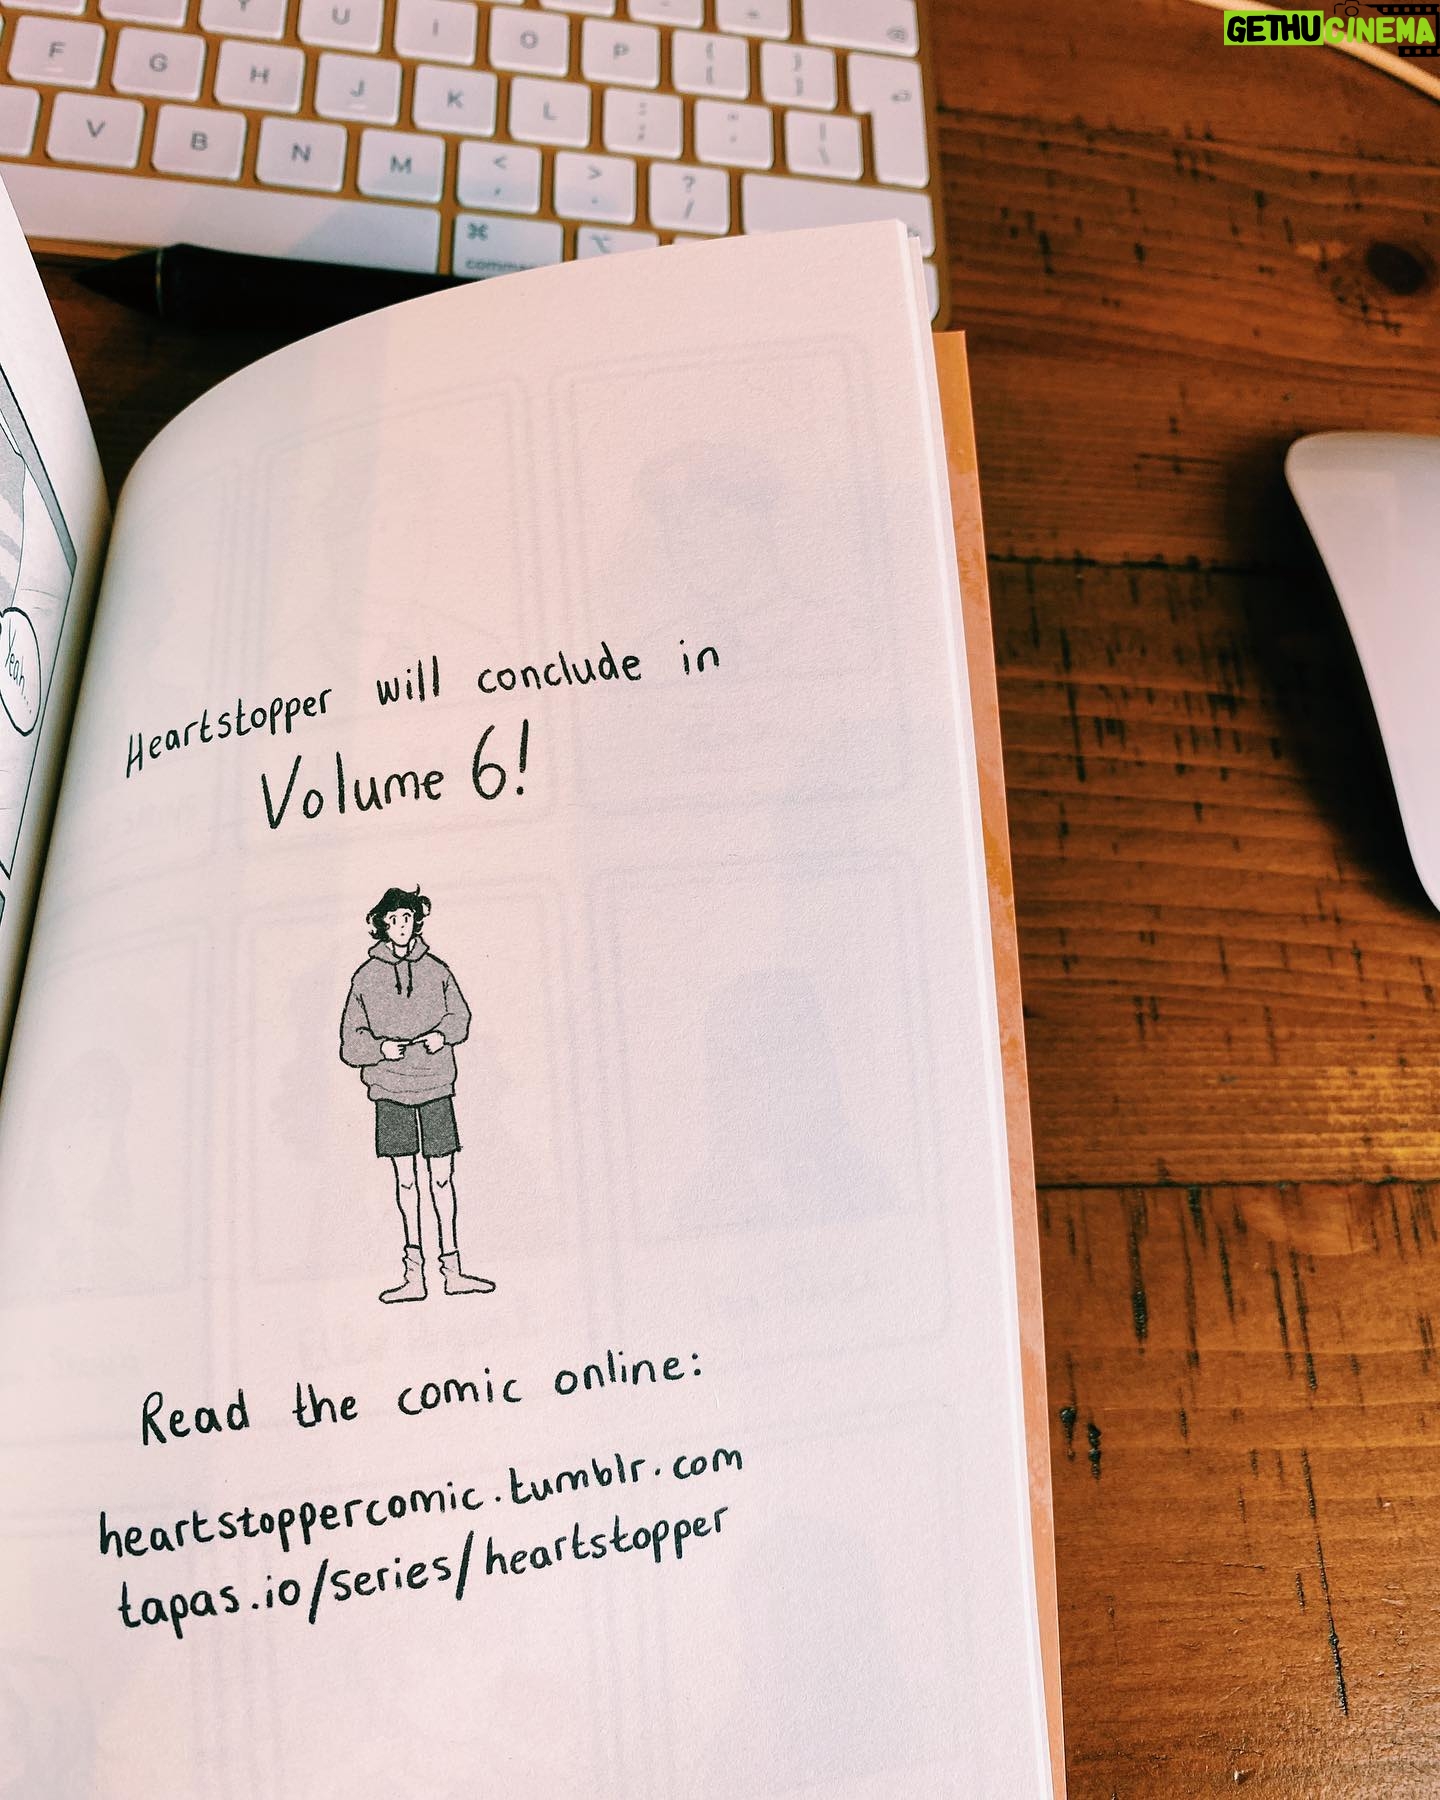 GETHUCINEMA
Y U I O P { [ } ]
F G H J K L : ; " ' | \
V B N M < , > . ? /
⌘ ⌥
Yeah...
Heartstopper will conclude in
Volume 6!
Read the comic online:
heartstoppercomic.tumblr.com
tapas.io/series/heartstopper